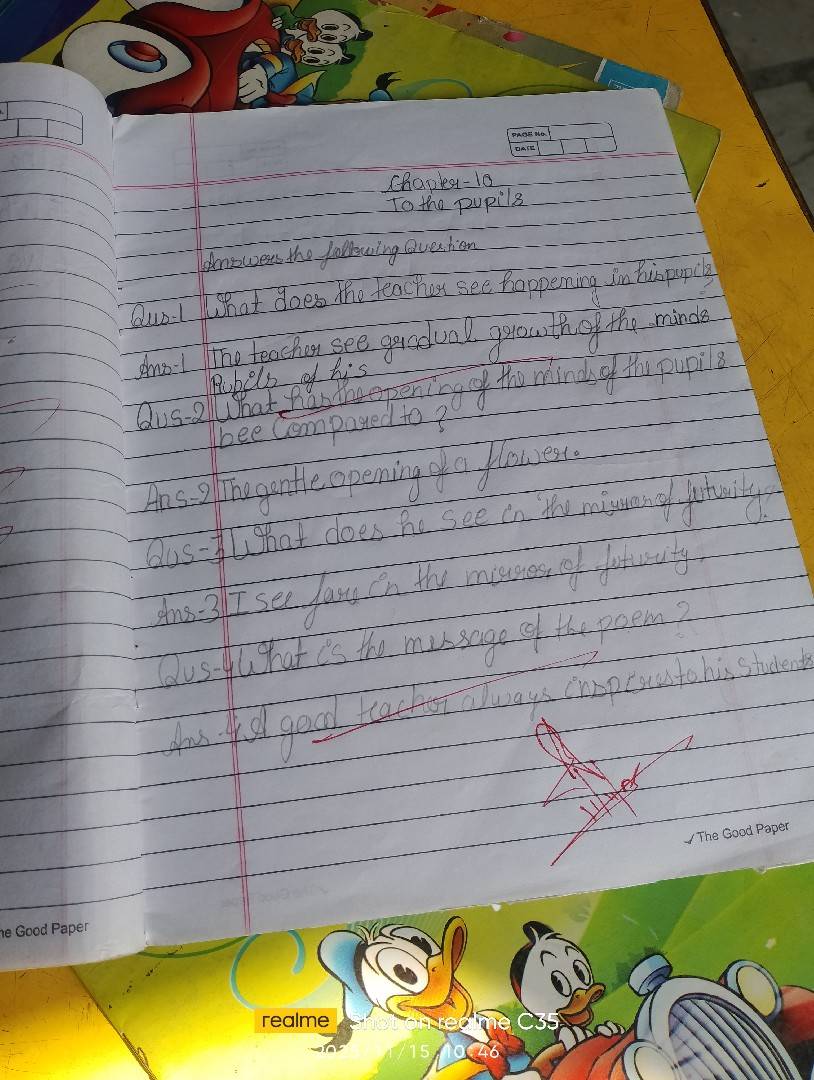 PAGE No.
DATE
Chapter-10
To the pupils
Answers the following Question
Qus-1 What does the teacher see happening in his pupils?
Ans-1 The teacher see gradual growth of the minds
Pupils of his
Qus-2 What has the opening of the minds of the pupils
bee Compared to ?
Ans-2 The gentle opening of a flower.
Qus-3 What does he see in the mirror of futurity?
Ans-3 I see fame in the mirror of futurity.
Qus-4 What is the message of the poem ?
Ans-4 A good teacher always insperes to his Students
The Good Paper
he Good Paper
realme Shot on realme C35
10:46